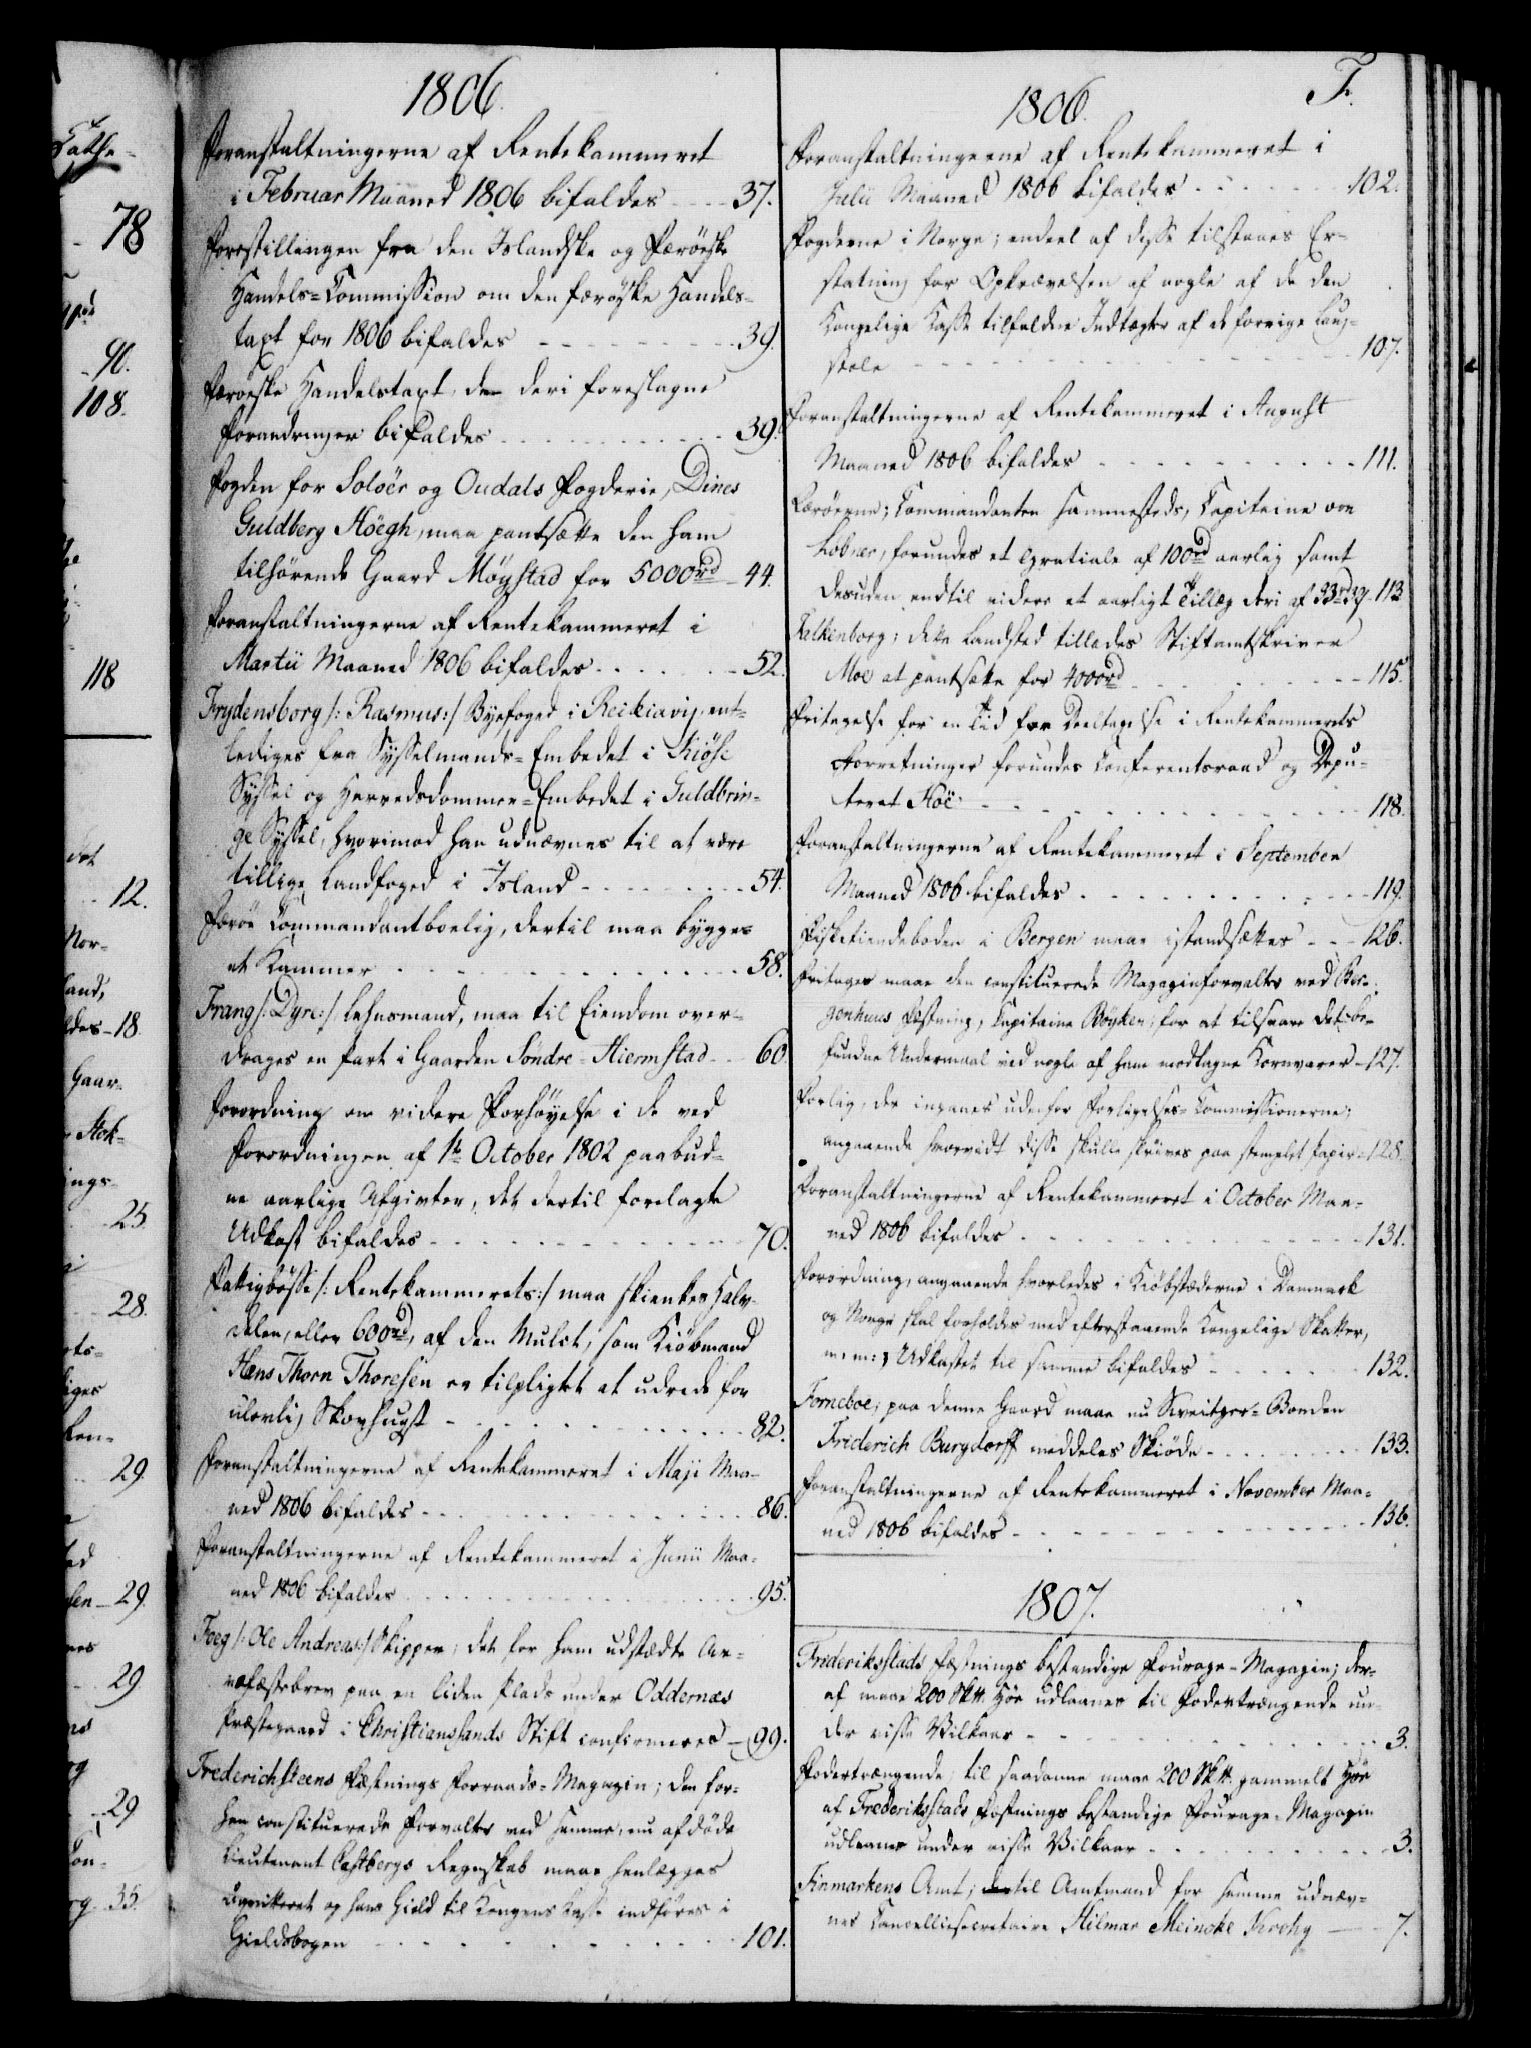 1806.
Foranstaltningerne af Rentekammeret
i Februar Maaned 1806 bifaldes - - - - 37.
Forestillingen fra den Islandske og Færöeske
Handels=Commission om den færöyske Handels-
taxt for 1806 bifaldes - - - - - - - - 39.
Færöeske Handelstaxt, de deri foreslagne
Forandringer bifaldes - - - - - - - - 39.
Fogden for Solöer og Oudals Fogderie, Dines
Guldberg Höegh, maa pantsætte den ham
tilhörende Gaard Möystad for 5000rd - 44.
Foranstaltningerne af Rentekammeret i
Martii Maaned 1806 bifaldes - - - - - - 52.
Frydensborg /: Rasmus :/ Byefoged i Reikiavig, ent-
lediges fra Sysselmands=Embedet i Kiöse
Syssel og Herredsdommer=Embedet i Guldbrin-
ge Syssel, hvorimod han udnævnes til at være
tillige Landfoged i Island - - - - - - - - 54.
Færöe Commandantboelig, dertil maa bygges
et Kammer - - - - - - - - - - - - 58.
Frang /: Dyre :/ Lehnsmand, maa til Eiendom over-
drages en Part i Gaarden Söndre=Hiermstad - - 60.
Forordning om videre Forhöyelse i de ved
Forordningen af 1te October 1802 paabud-
ne aarlige Afgivter, det dertil forelagte
Udkast bifaldes - - - - - - - - - - - 70.
Fattigbösse /: Rentekammerets :/ maa skienkes Halv-
delen, eller 600rd, af den Mulct, som Kiöbmand
Hans Thorn Thoresen er tilpligtet at udrede for
ulovlig Skovhugst - - - - - - - - - - 82.
Foranstaltningerne af Rentekammeret i Maji Maa-
ned 1806 bifaldes - - - - - - - - - - - 86.
Foranstaltningerne af Rentekammeret i Junii Maa-
ned 1806 bifaldes - - - - - - - - - - - 95.
Foeg /: Ole Andreas :/ Skipper, det for ham udstædte Ar-
vefæstebrev paa en liden Plads under Oddernæs
Præstegaard i Christianssands Stift confirmeres - 99.
Frederichsteens Fæstnings Forraads=Magazin; den for-
hen constituerede Forvalter ved samme, nu afdöde
Lieutenant Castbergs Regnskab maae henlægges
og hans Gield til Kongens Casse indföres i
Gieldsbogen - - - - - - - - - - - - 101.
1806.
F.
Foranstaltningerne af Rentekammeret i
Julii Maaned 1806 bifaldes - - - - - - - 102.
Fogderne i Norge; endeel af disse tilstaaes Er-
statning for Opkrævelsen af nogle af de den
Kongelige Casse tilfaldne Indtægter af de forrige Laug-
stole - - - - - - - - - - - - - - 107.
Foranstaltningerne af Rentekammeret i August
Maaned 1806 bifaldes - - - - - - - - - - 111.
Færöerne; Commandanten sammesteds, Capitaine von
Löbner, forundes et gratiale af 100rd aarlig samt
desuden endtil videre et aarligt Tillæg deri af 33rd 32ß - 113.
Falkenborg; dette Landsted tillades Stiftamtskriver
Moe at pantsætte for 4000rd - - - - - - - - 115.
Fritagelse for en Tiid for Deeltagelse i Rentekammerets
Forretninger forundes Conferentsraad og Depu-
teret Höe - - - - - - - - - - - - 118.
Foranstaltningerne af Rentekammeret i September
Maaned 1806 bifaldes - - - - - - - - - - 119.
Fisketiendeboden i Bergen maae istandsættes - - - 126.
Fritages maae den constituerede Magazinforvalter ved Ber-
genhuus Fæstning, Capitaine Böyken, for at tilsvare det be-
fundne Undermaal ved nogle af ham modtagne Kornvarer - 127.
Forlig, der indgaaes udenfor Forligelses=Commissionerne;
angaaende hvorvidt disse skulle skrives paa stemplet Papir - 128.
Foranstaltningerne af Rentekammeret i October Maa-
ned 1806 bifaldes - - - - - - - - - - - 131.
Forordning, angaaende hvorledes i Kiöbstæderne i Danmark
og Norge skal forholdes med efterstaaende Kongelige Skatter,
m: m:; Udkastet til samme bifaldes - - - - - - 132.
Forneboe; paa denne Gaard maae nu Sweitzer=Bonden
Friderich Burgdorff meddeles Skiöde - - - - - - 133.
Foranstaltningerne af Rentekammeret i November Maa-
ned 1806 bifaldes - - - - - - - - - - - 136.
1807.
Frideriksstads Fæstnings bestandige Fourage=Magazin; der-
af maae 200 Sk℔. Höe udlaanes til Fodertrængende un-
der visse Vilkaar - - - - - - - - - - - 3.
Fodertrængende; til saadanne maae 200 Sk℔. gammelt Höe
af Frederiksstads Fæstnings bestandige Fourage=Magazin
udlaanes under visse Vilkaar - - - - - - - - 3.
Finmarkens Amt; til Amtmand for samme udnæv-
nes Cancelliesecretaire Hilmar Meincke Krohg - - 7.
78
90.
108.
118
12.
18.
25.
28.
29.
29.
29
29
35.